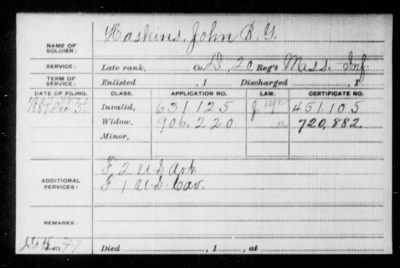 NAME OF SOLDIER: Haskins, John B. G.
SERVICE: Late rank, Co. D, 20 Reg't Mass. Inf
TERM OF SERVICE: Enlisted , 1 Discharged , 1
DATE OF FILING. CLASS. APPLICATION NO. LAW. CERTIFICATE NO.
Invalid, 631.125 451.105
Widow, 906.220 720,882.
Minor,
ADDITIONAL SERVICES: F 2 U S Art
F 1 U.S. Cav.
REMARKS:
Died , 1 , at